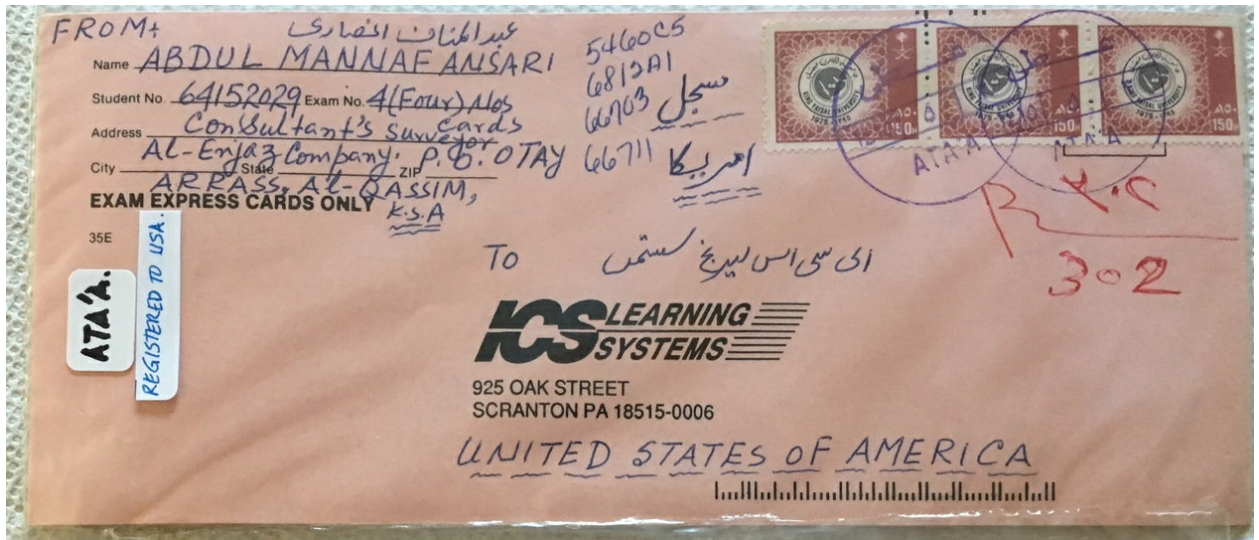 FROM+
عبدالمنان انصاری
Name ABDUL MANNAF ANSARI
Student No. 64152029 Exam No. 4(Four) Nos
Cards
Address Consultant's surveyor
Al-Enjaz Company. P.O. OTAY
City State ZIP
ARRASS, AL-QASSIM,
K.S.A
EXAM EXPRESS CARDS ONLY
35E
5460C5
6812A1
66703
66711
مسجل
امریکا
ATA'A.
REGISTERED TO USA.
KING FAISAL UNIVERSITY
150H
150H
150H
ATA'A
ATA'A
R ٣٠٢
302
To
ای سی اس لیرنخ سسٹمس
ICS LEARNING
SYSTEMS
925 OAK STREET
SCRANTON PA 18515-0006
UNITED STATES OF AMERICA